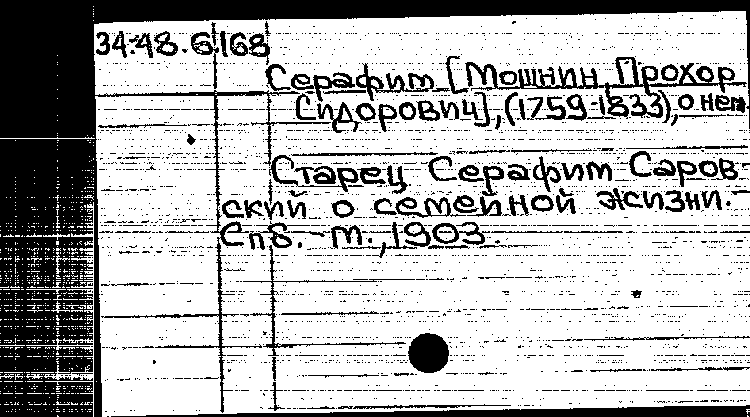 34.48.6.168
Серафим [Мошнин, Прохор
Сидорович], (1759-1833), о нем
Старец Серафим Саров-
ский о семейной жизни.-
Спб.-М., 1903.